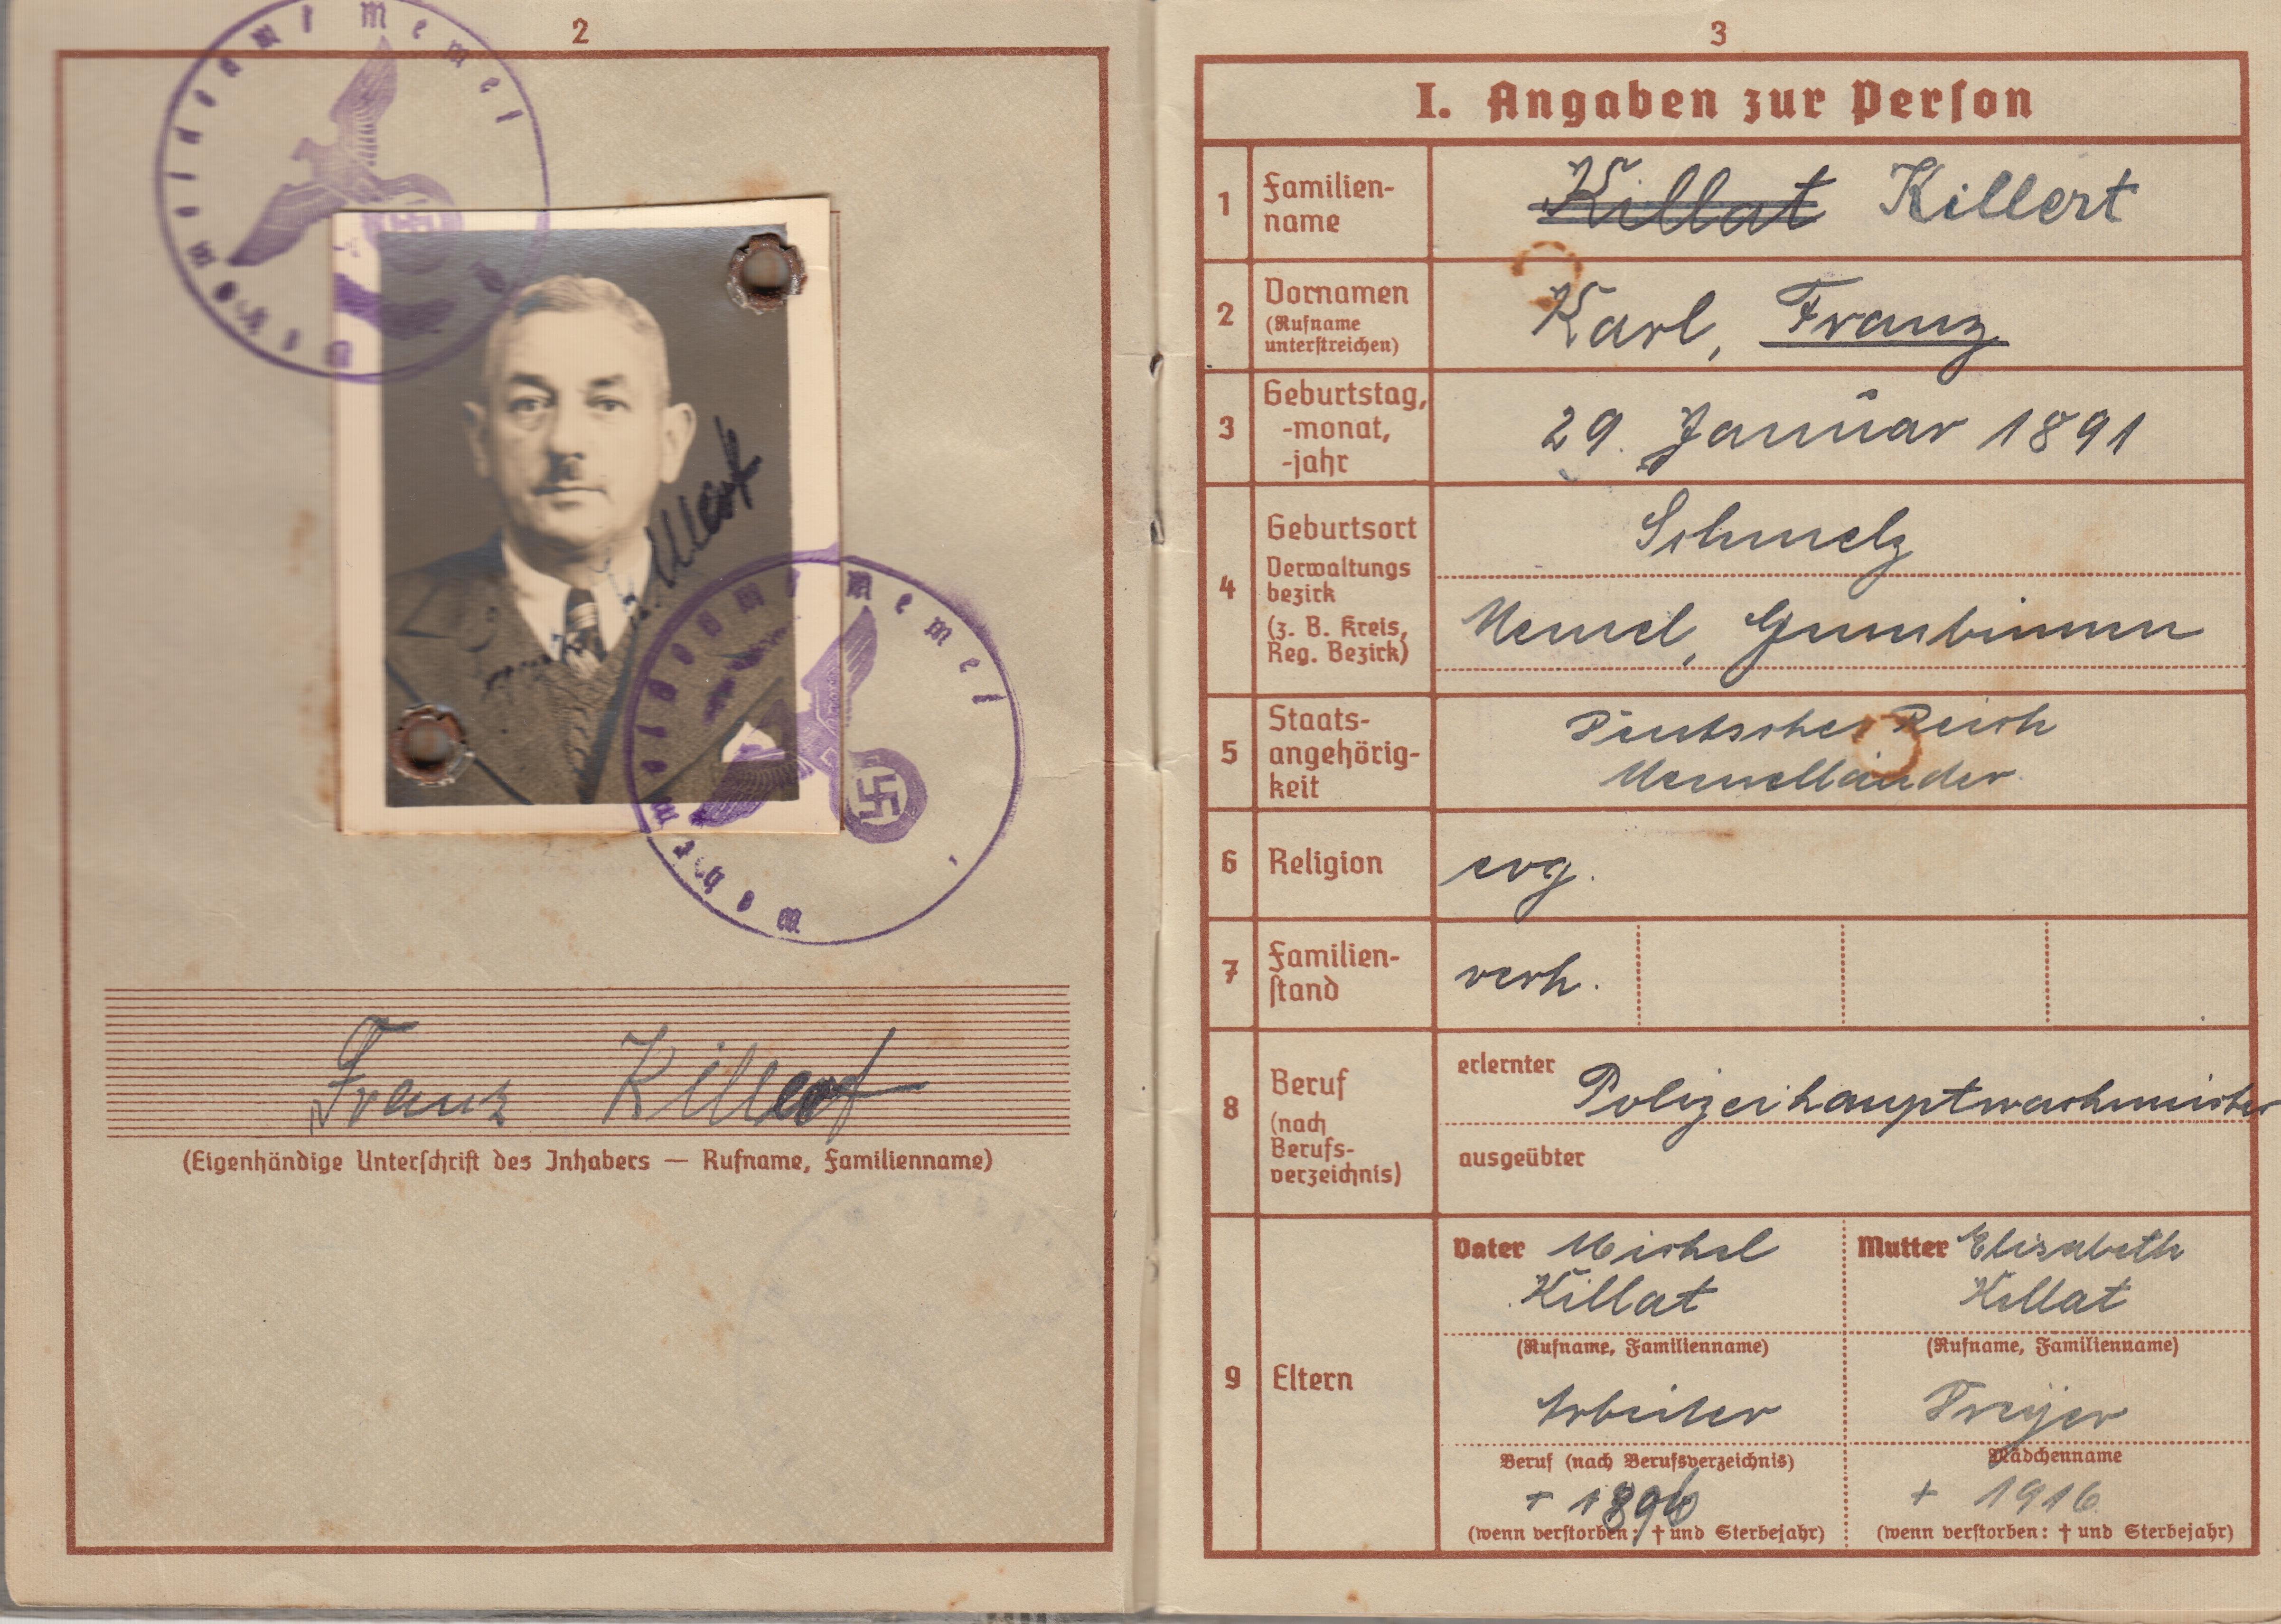 2
Wehrmeldeamt Memel
Killert
Wehrmeldeamt Memel
Franz Killert
(Eigenhändige Unterschrift des Inhabers — Rufname, Familienname)
3
I. Angaben zur Person
1 Familien-
name
Killat Killert
2 Vornamen
(Rufname
unterstreichen)
Karl, Franz
3 Geburtstag,
-monat,
-jahr
29. Januar 1891
4 Geburtsort
Verwaltungs
bezirk
(z. B. Kreis,
Reg. Bezirk)
Schmelz
Memel, Gumbinnen
5 Staats-
angehörig-
keit
Deutsches Reich
Memelländer
6 Religion
evg.
7 Familien-
stand
verh.
8 Beruf
(nach
Berufs-
verzeichnis)
erlernter Polizeihauptwachmeister
ausgeübter
9 Eltern
Vater Michel
Killat
(Rufname, Familienname)
Arbeiter
Beruf (nach Berufsverzeichnis)
+ 1896
(wenn verstorben: † und Sterbejahr)
Mutter Elisabeth
Killat
(Rufname, Familienname)
Mädchenname
+ 1916
(wenn verstorben: † und Sterbejahr)